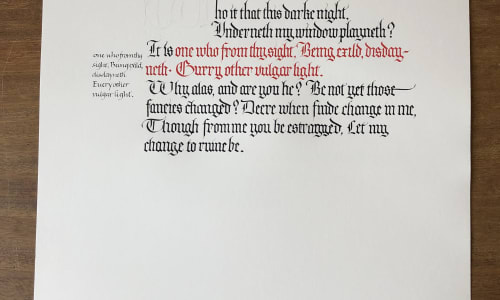 ho it that this darke night,
Underneth my window playneth?
It is one who from thy sight, Being exild, disday-
neth. Eurry other vulgar light.
Why alas, and are you he? Be not yet those
fancies changed? Deere when finde change in me,
Though from me you be estragged, Let my
change to ruine be.
one who from thy
sight, Being exild,
disdayneth.
Euery other
vulgar light.